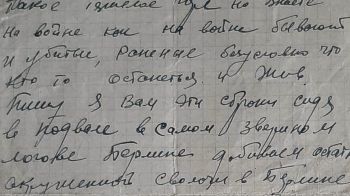 такое тяжелое горе но знаете
На войне как на войне бывают
и убитые, раненые безусловно что
кто то останеться и жив.
Пишу я Вам эти строки сидя
в подвале в самом зверином
логове Берлине добиваем остат
окруженной сволочи в Берлине